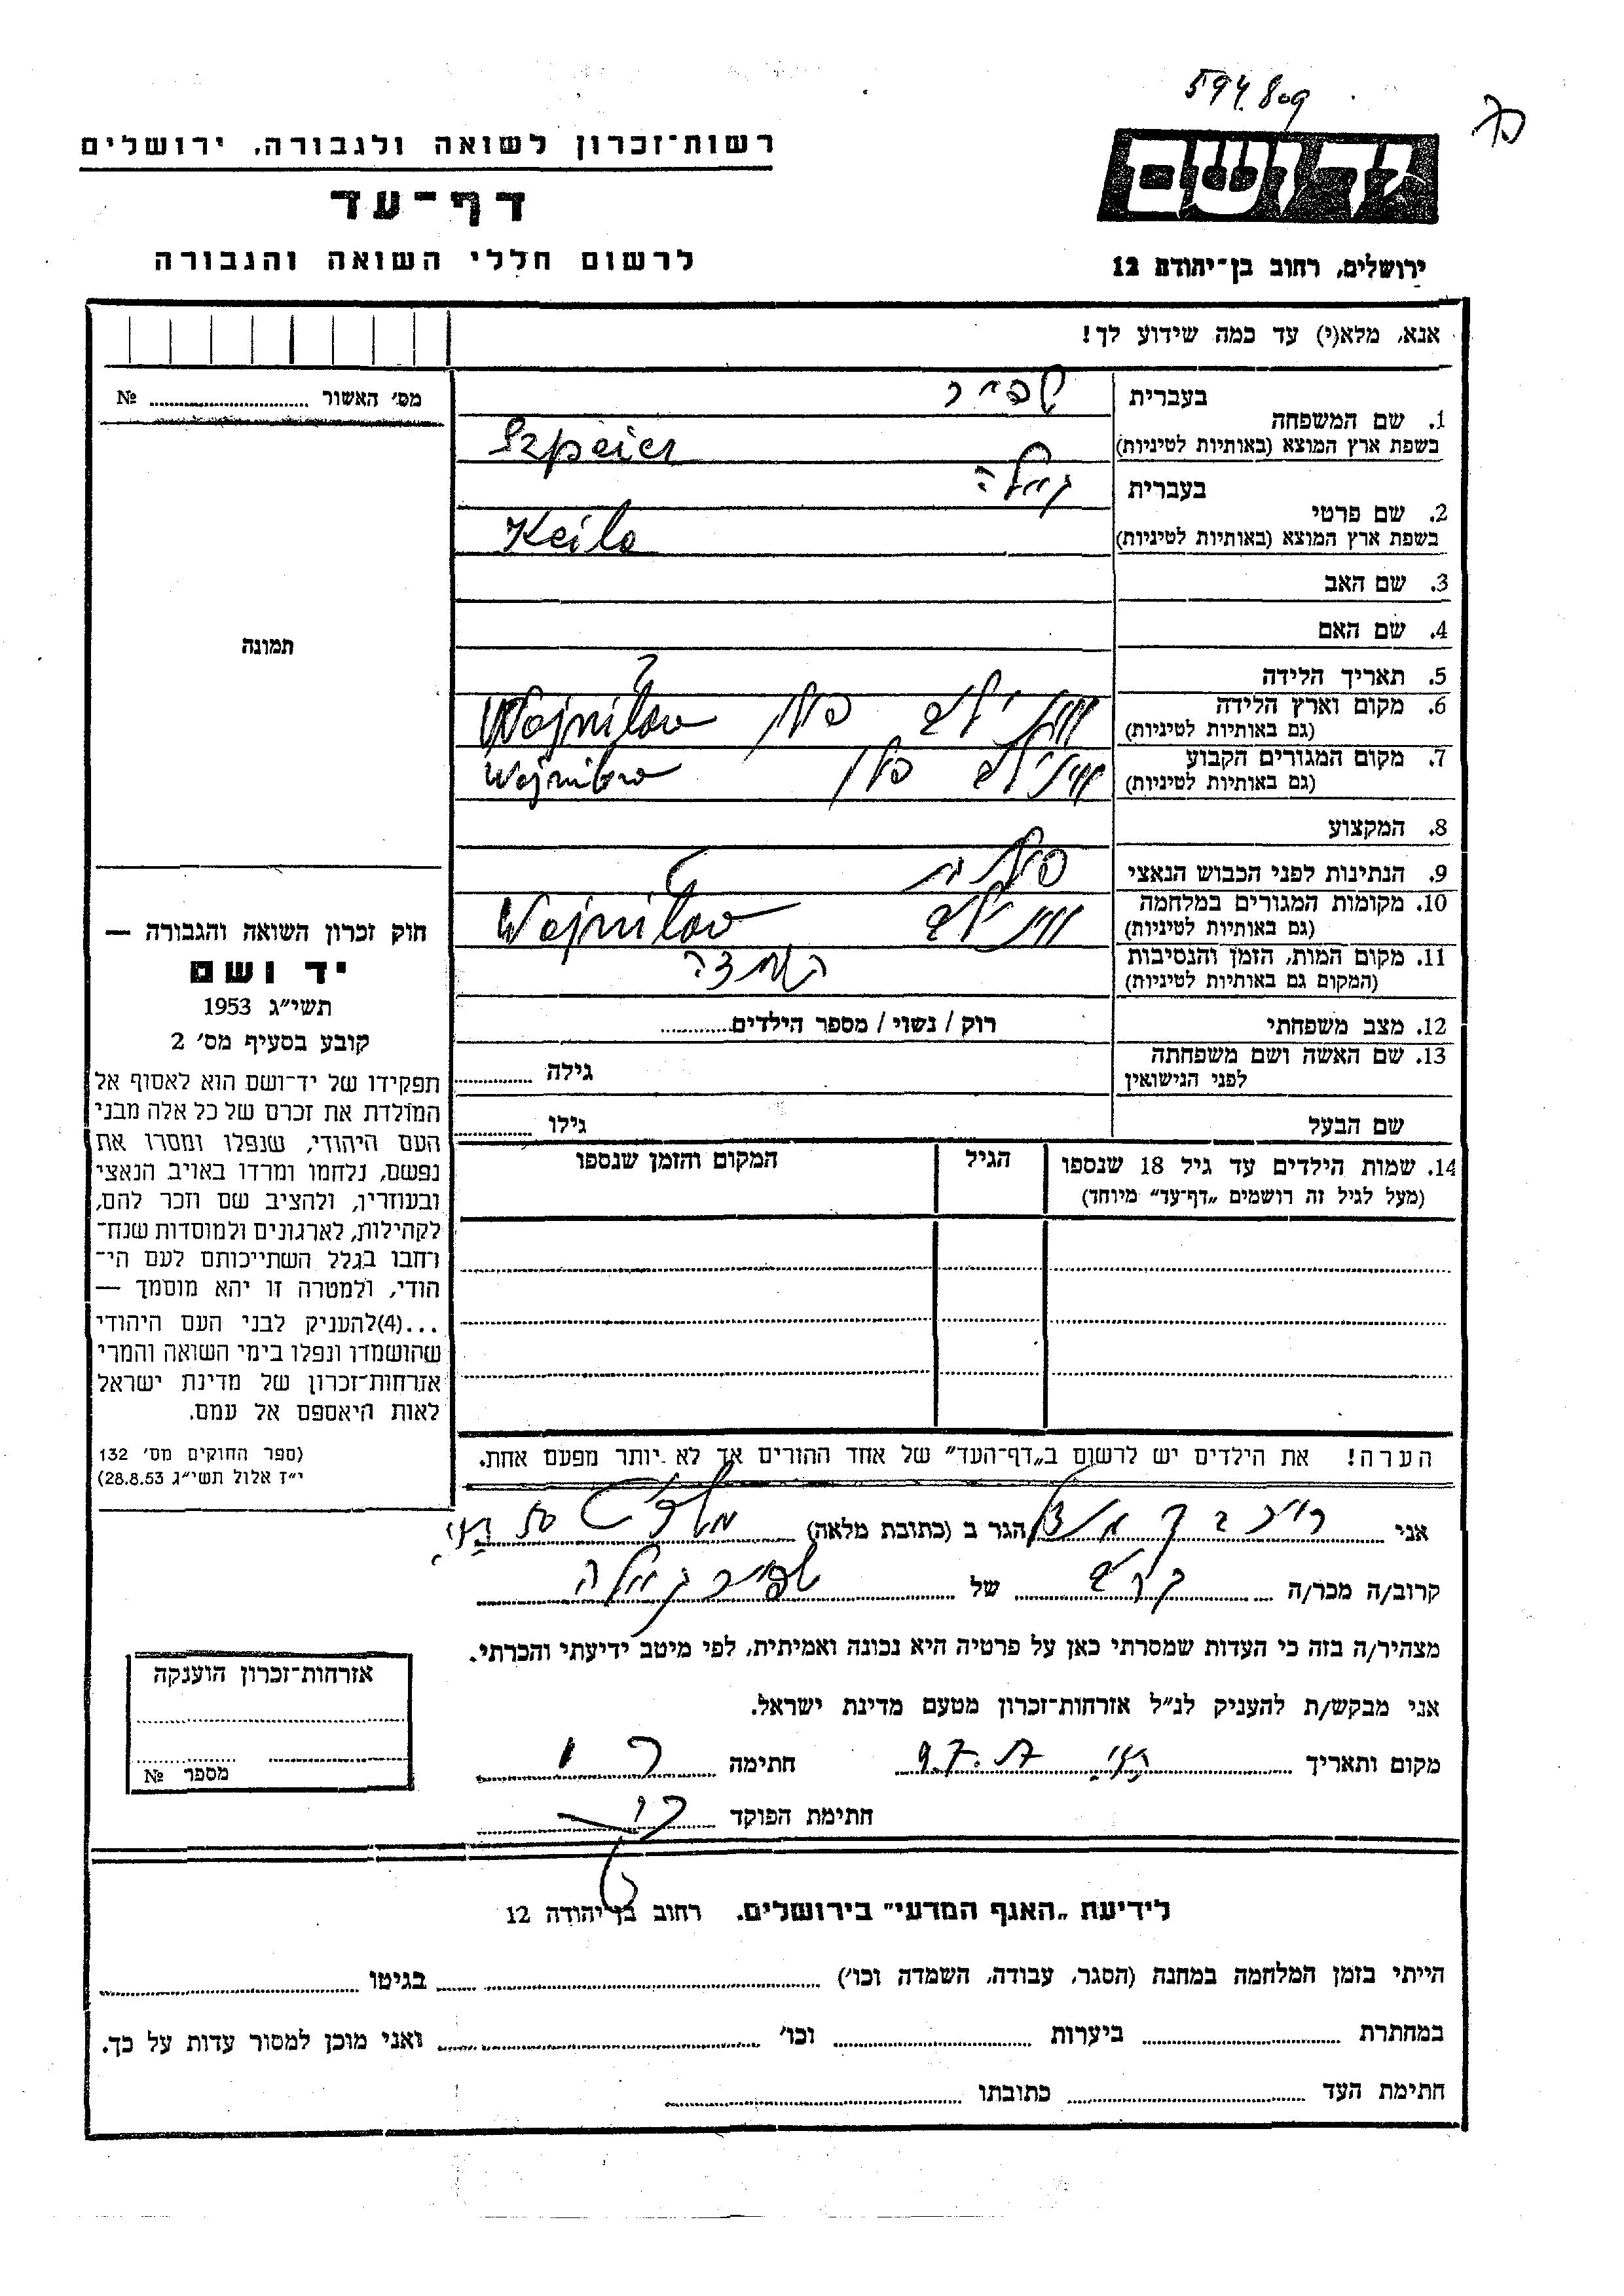 594.809
רשות־זכרון לשואה ולגבורה, ירושלים
דף־עד
לרשום חללי השואה והגבורה
יד ושם
ירושלים, רחוב בן־יהודה 12
אנא, מלא(י) עד כמה שידוע לך!
מס׳ האשור № 
1. שם המשפחה
בעברית שפייר
בשפת ארץ המוצא (באותיות לטיניות) Szpeier
2. שם פרטי
בעברית קיילה
בשפת ארץ המוצא (באותיות לטיניות) Keila
3. שם האב
4. שם האם
5. תאריך הלידה
6. מקום וארץ הלידה
(גם באותיות לטיניות) פולין Wojniłow
7. מקום המגורים הקבוע
(גם באותיות לטיניות) פולין Wojniłow
8. המקצוע
9. הנתינות לפני הכבוש הנאצי פולנית
10. מקומות המגורים במלחמה
(גם באותיות לטיניות) Wojniłow
11. מקום המות, הזמן והנסיבות
(המקום גם באותיות לטיניות) השמדה
12. מצב משפחתי רוק / נשוי / מספר הילדים
13. שם האשה ושם משפחתה
לפני הנישואין גילה
שם הבעל גילו
14. שמות הילדים עד גיל 18 שנספו הגיל המקום והזמן שנספו
(מעל לגיל זה רושמים „דף־עד” מיוחד)
הערה! את הילדים יש לרשום ב„דף־העד” של אחד ההורים אך לא יותר מפעם אחת.
תמונה
חוק זכרון השואה והגבורה —
יד ושם
תשי״ג 1953
קובע בסעיף מס׳ 2
תפקידו של יד־ושם הוא לאסוף אל
המולדת את זכרם של כל אלה מבני
העם היהודי, שנפלו ומסרו את
נפשם, נלחמו ומרדו באויב הנאצי
ובעוזריו, ולהציב שם וזכר להם,
לקהילות, לארגונים ולמוסדות שנח־
רחבו בגלל השתייכותם לעם הי־
הודי, ולמטרה זו יהא מוסמך —
...(4)להעניק לבני העם היהודי
שהושמדו ונפלו בימי השואה והמרי
אזרחות־זכרון של מדינת ישראל
לאות היאספם אל עמם.
(ספר החוקים מס׳ 132
י״ז אלול תשי״ג 28.8.53)
אני הגר ב (כתובת מלאה)
קרוב/ה מכר/ה קרוב של שפייר קיילה
מצהיר/ה בזה כי העדות שמסרתי כאן על פרטיה היא נכונה ואמיתית, לפי מיטב ידיעתי והכרתי.
אני מבקש/ת להעניק לנ״ל אזרחות־זכרון מטעם מדינת ישראל.
מקום ותאריך חתימה
חתימת הפוקד
אזרחות־זכרון הוענקה
מספר №
לידיעת „האגף המדעי” בירושלים. רחוב בן יהודה 12
הייתי בזמן המלחמה במחנה (הסגר, עבודה, השמדה וכו׳) בגיטו
במחתרת ביערות וכו׳ ואני מוכן למסור עדות על כך.
חתימת העד כתובתו